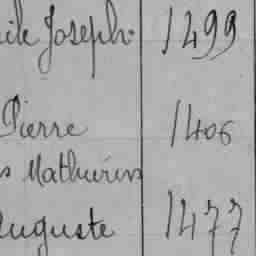 ile Joseph 1499
Pierre 1406
s Mathurin
Auguste 1477